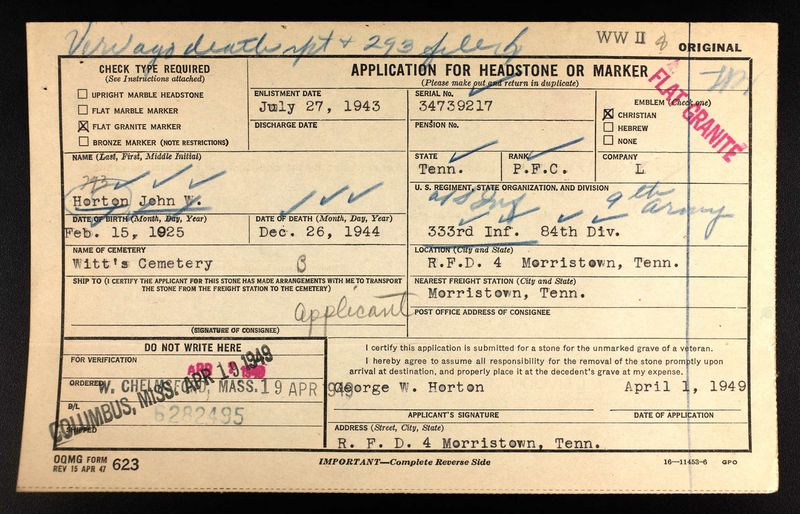 Ver ago death rpt + 293 file
WW II
ORIGINAL
CHECK TYPE REQUIRED
(See Instructions attached)
UPRIGHT MARBLE HEADSTONE
FLAT MARBLE MARKER
X FLAT GRANITE MARKER
BRONZE MARKER (NOTE RESTRICTIONS)
APPLICATION FOR HEADSTONE OR MARKER
(Please make out and return in duplicate)
ENLISTMENT DATE
July 27, 1943
SERIAL No.
34739217
EMBLEM (Check one)
X CHRISTIAN
HEBREW
NONE
FLAT GRANITE
DISCHARGE DATE
PENSION No.
NAME (Last, First, Middle Initial)
293
Horton John W.
STATE
Tenn.
RANK
P.F.C.
COMPANY
L
U. S. REGIMENT, STATE ORGANIZATION, AND DIVISION
9th Army
333rd Inf. 84th Div.
DATE OF BIRTH (Month, Day, Year)
Feb. 15, 1925
DATE OF DEATH (Month, Day, Year)
Dec. 26, 1944
NAME OF CEMETERY
Witt's Cemetery B
LOCATION (City and State)
R.F.D. 4 Morristown, Tenn.
SHIP TO (I CERTIFY THE APPLICANT FOR THIS STONE HAS MADE ARRANGEMENTS WITH ME TO TRANSPORT
THE STONE FROM THE FREIGHT STATION TO THE CEMETERY)
applicant
(SIGNATURE OF CONSIGNEE)
NEAREST FREIGHT STATION (City and State)
Morristown, Tenn.
POST OFFICE ADDRESS OF CONSIGNEE
DO NOT WRITE HERE
FOR VERIFICATION
APR 1949
ORDERED
W. CHELMSFORD, MASS. 19 APR 1949
COLUMBUS, MISS. APR 19 1949
B/L
6282495
SHIPPED
I certify this application is submitted for a stone for the unmarked grave of a veteran.
I hereby agree to assume all responsibility for the removal of the stone promptly upon
arrival at destination, and properly place it at the decedent's grave at my expense.
George W. Horton April 1, 1949
APPLICANT'S SIGNATURE DATE OF APPLICATION
ADDRESS (Street, City, State)
R. F. D. 4 Morristown, Tenn.
OQMG FORM
REV 15 APR 47 623
IMPORTANT—Complete Reverse Side
16—11453-6 GPO